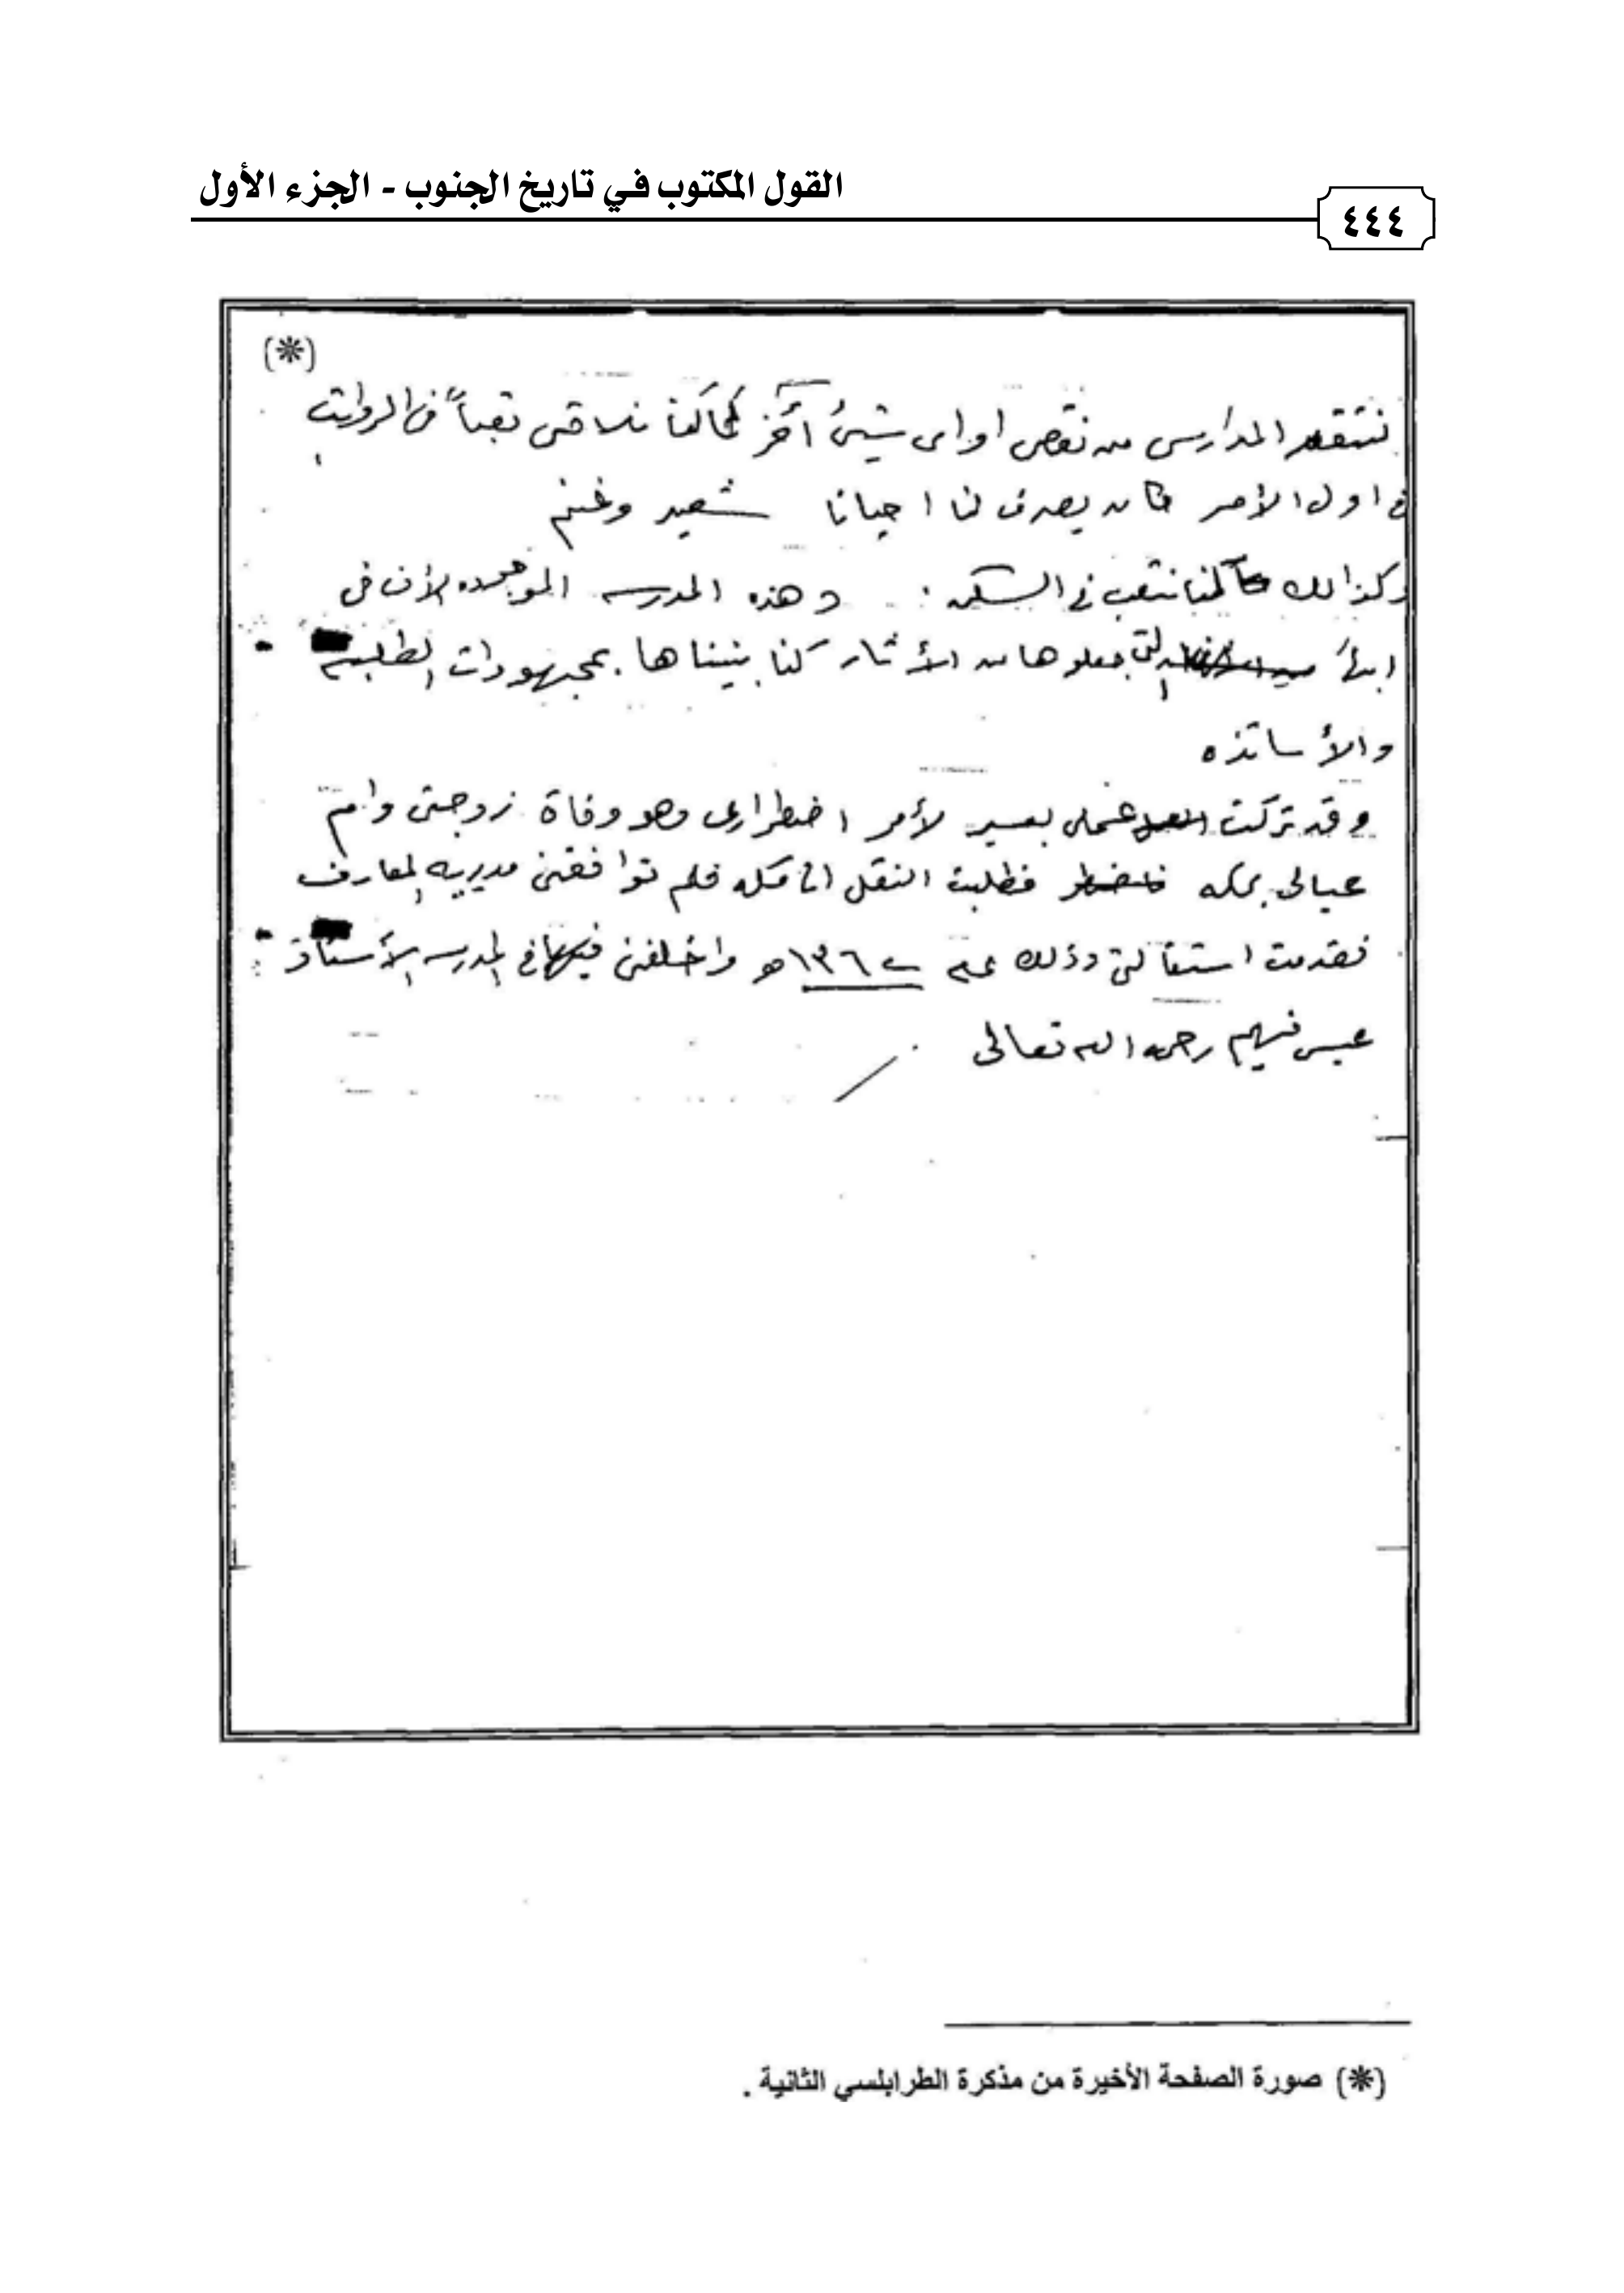 القول المكتوب في تاريخ الجنوب - الجزء الأول
٤٤٤
(*)
المدارس من نقص او اى شيئ آخر كما كنا نلاقى تعباً فى الرواتب
فى اول الأمر فكان يصرف لنا احيانا شعير وغنم
وكذالك كنا نتعب فى السكن . وهذه المدرسه الموجوده الأن فى
ابها التى جعلوها من الأثار كنا بنيناها بمجهودات الطلبه
والأساتذه
وقد تركت عملى بعسير لأمر اضطرارى وهو وفاة زوجتى وام
عيالى بمكه فطلبت النقل الى مكه فلم توافقنى مديريه المعارف
فقدمت استقالتى وذلك عام هـ واخلفنى فيها فى المدرسه الأستاذ
فهيم رحمه الله تعالى
(*) صورة الصفحة الأخيرة من مذكرة الطرابلسي الثانية .